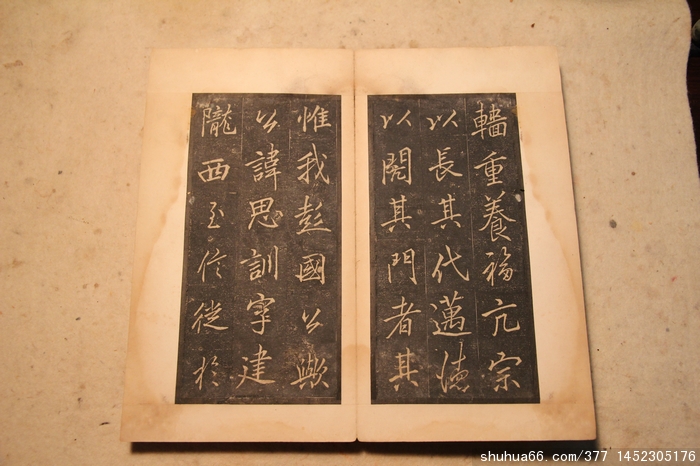 重養福亢宗
以長其代邁德
以其門者其
惟我彭國公歟
公諱思訓字建
隴西至信徙於
shuhua66.com/377 1452305176